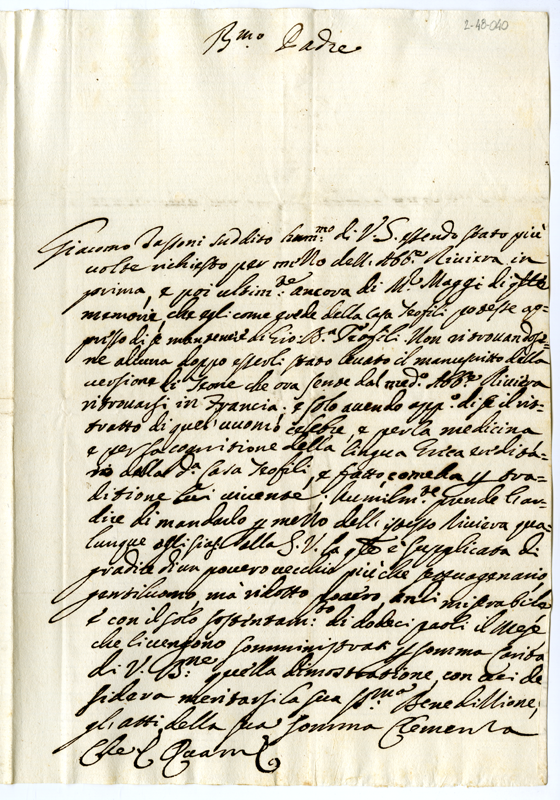 2-48-040
B.mo Padre
Giacomo Tassoni suddito hum.mo di V.S. essendo stato più
volte richiesto per m.zzo dell'Abb.e Riviera in
prima, e poi ultim.te ancora di M.r Maggi di q.lle
memorie, che egli come erede della Casa Teofili potesse ap=
presso di se mantenere di Gio. B.a Teofili. Non ritrovando=
ne alcuna doppo esserli stato levato il manuscritto della
versione di Teone che ora sente dal med.o Abb.e Riviera
ritrovarsi in Francia, e solo avendo app.o di se il rit=
tratto di quel uuomo celebre, e per la medicina
e per la cognitione della lingua Greca
della d.a Casa Teofili, e fatto, come da tra=
ditione vivente. Humilm.te prende l'ar=
dire di mandarlo p mezzo dell'istesso Riviera qua=
lunque egli siasi alla S.V. la q.le è supplicata di
gradire di un povero vecchio più che settuagenario
gentiluomo, mà ridotto povero, anzi miserabile
e con il solo sostentam.to di dodeci paoli il Mese
che li vengono somministrati p somma Carità
di V. B.ne quella dimostratione, con cui de
sidera meritarsi la sua S.ma Beneditione,
gli atti della sua somma Clemenza
Che &c. Quam &c.